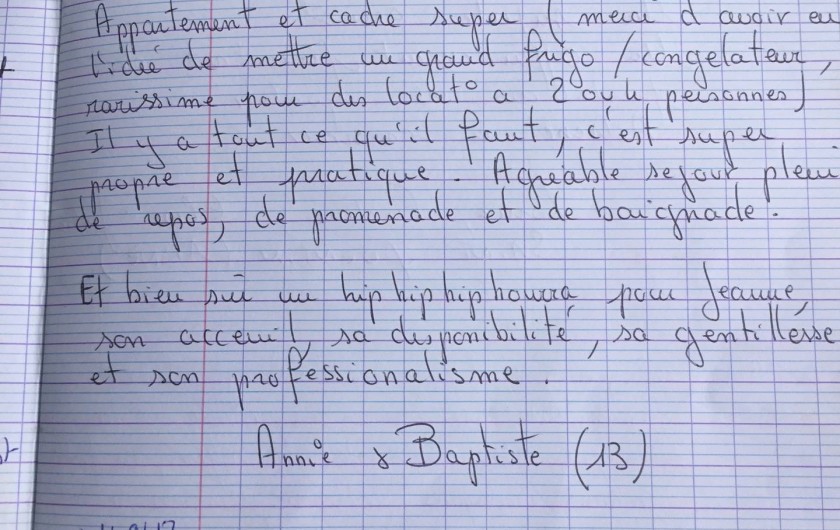 Appartement et cadre super (merci d'avoir eu
l'idée de mettre un grand frigo / congelateur,
rarissime pour des locat° a 2 ou 4 personnes)
Il y a tout ce qu'il faut, c'est super
propre et pratique. Agréable sejour plein
de repos, de promenade et de baignade.
Et bien sûr un hip hip hip hourra pour Jeanne,
son acceuil, sa disponibilité, sa gentillesse
et son professionalisme.
Annie & Baptiste (13)